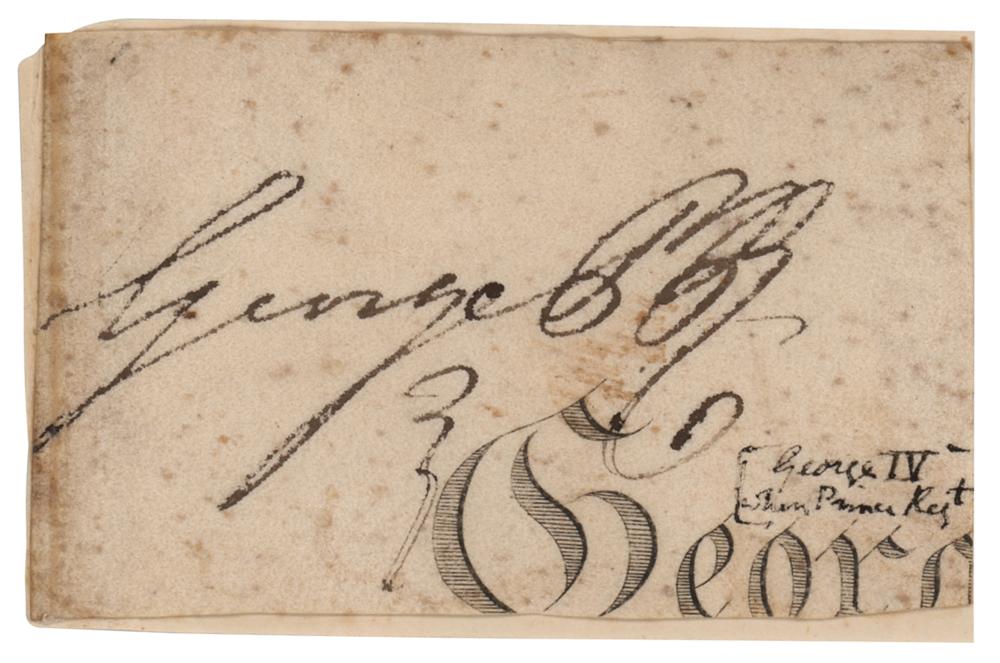 George PR
[George IV
when Prince Regt
Geor